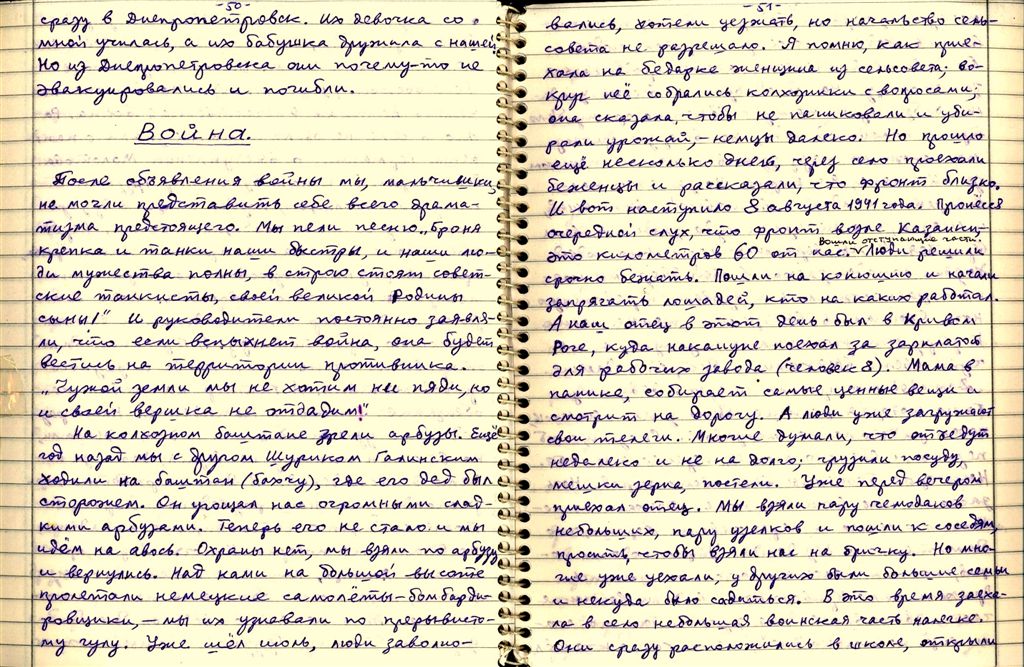 -50-
сразу в Днепропетровск. Их девочка со
мной училась, а их бабушка дружила с нашей.
Но из Днепропетровска они почему-то не
эвакуировались и погибли.
Война.
После объявления войны мы, мальчишки,
не могли представить себе всего драма-
тизма предстоящего. Мы пели песню „броня
крепка и танки наши быстры, и наши лю-
ди мужества полны, в строю стоят совет-
ские танкисты, своей великой Родины
сыны!" И руководители постоянно заявля-
ли, что если вспыхнет война, она будет
вестись на территории противника.
„Чужой земли мы не хотим ни пяди, но
и своей вершка не отдадим!"
На колхозном баштане зрели арбузы. Ещё
год назад мы с другом Шуриком Галинским
ходили на баштан (бахчу), где его дед был
сторожем. Он угощал нас огромными слад-
кими арбузами. Теперь его не стало и мы
идём на авось. Охраны нет, мы взяли по арбузу
и вернулись. Над нами на большой высоте
пролетали немецкие самолёты-бомбарди-
ровщики, – мы их узнавали по прерывисто-
му гулу. Уже шёл июль, люди заволно-
-51-
вались, хотели уезжать, но начальство сель-
совета не разрешало. Я помню, как прие-
хала на бедарке женщина из сельсовета; во-
круг неё собрались колхозники с вопросами;
она сказала, чтобы не паниковали и уби-
рали урожай, – немцы далеко. Но прошло
ещё несколько дней, через село проехали
беженцы и рассказали, что фронт близко.
И вот наступило 8 августа 1941 года. Пронёсся
очередной слух, что фронт возле Казанки, –
Вошли отступающие части.
это километров 60 от нас. Люди решили
срочно бежать. Пошли на конюшню и начали
запрягать лошадей, кто на каких работал.
А наш отец в этот день был в Кривом
Роге, куда накануне поехал за зарплатой
для рабочих завода (человек 8). Мама в
панике, собирает самые ценные вещи и
смотрит на дорогу. А люди уже загружают
свои телеги. Многие думали, что отъедут
недалеко и не на долго; грузили посуду,
мешки зерна, постели. Уже перед вечером
приехал отец. Мы взяли пару чемоданов
небольших, пару узелков и пошли к соседям,
просить, чтобы взяли нас на бричку. Но мно-
гие уже уехали; у других были большие семьи
и некуда было садиться. В это время заеха-
ла в село небольшая воинская часть налегке.
Они сразу расположились в школе, открыли